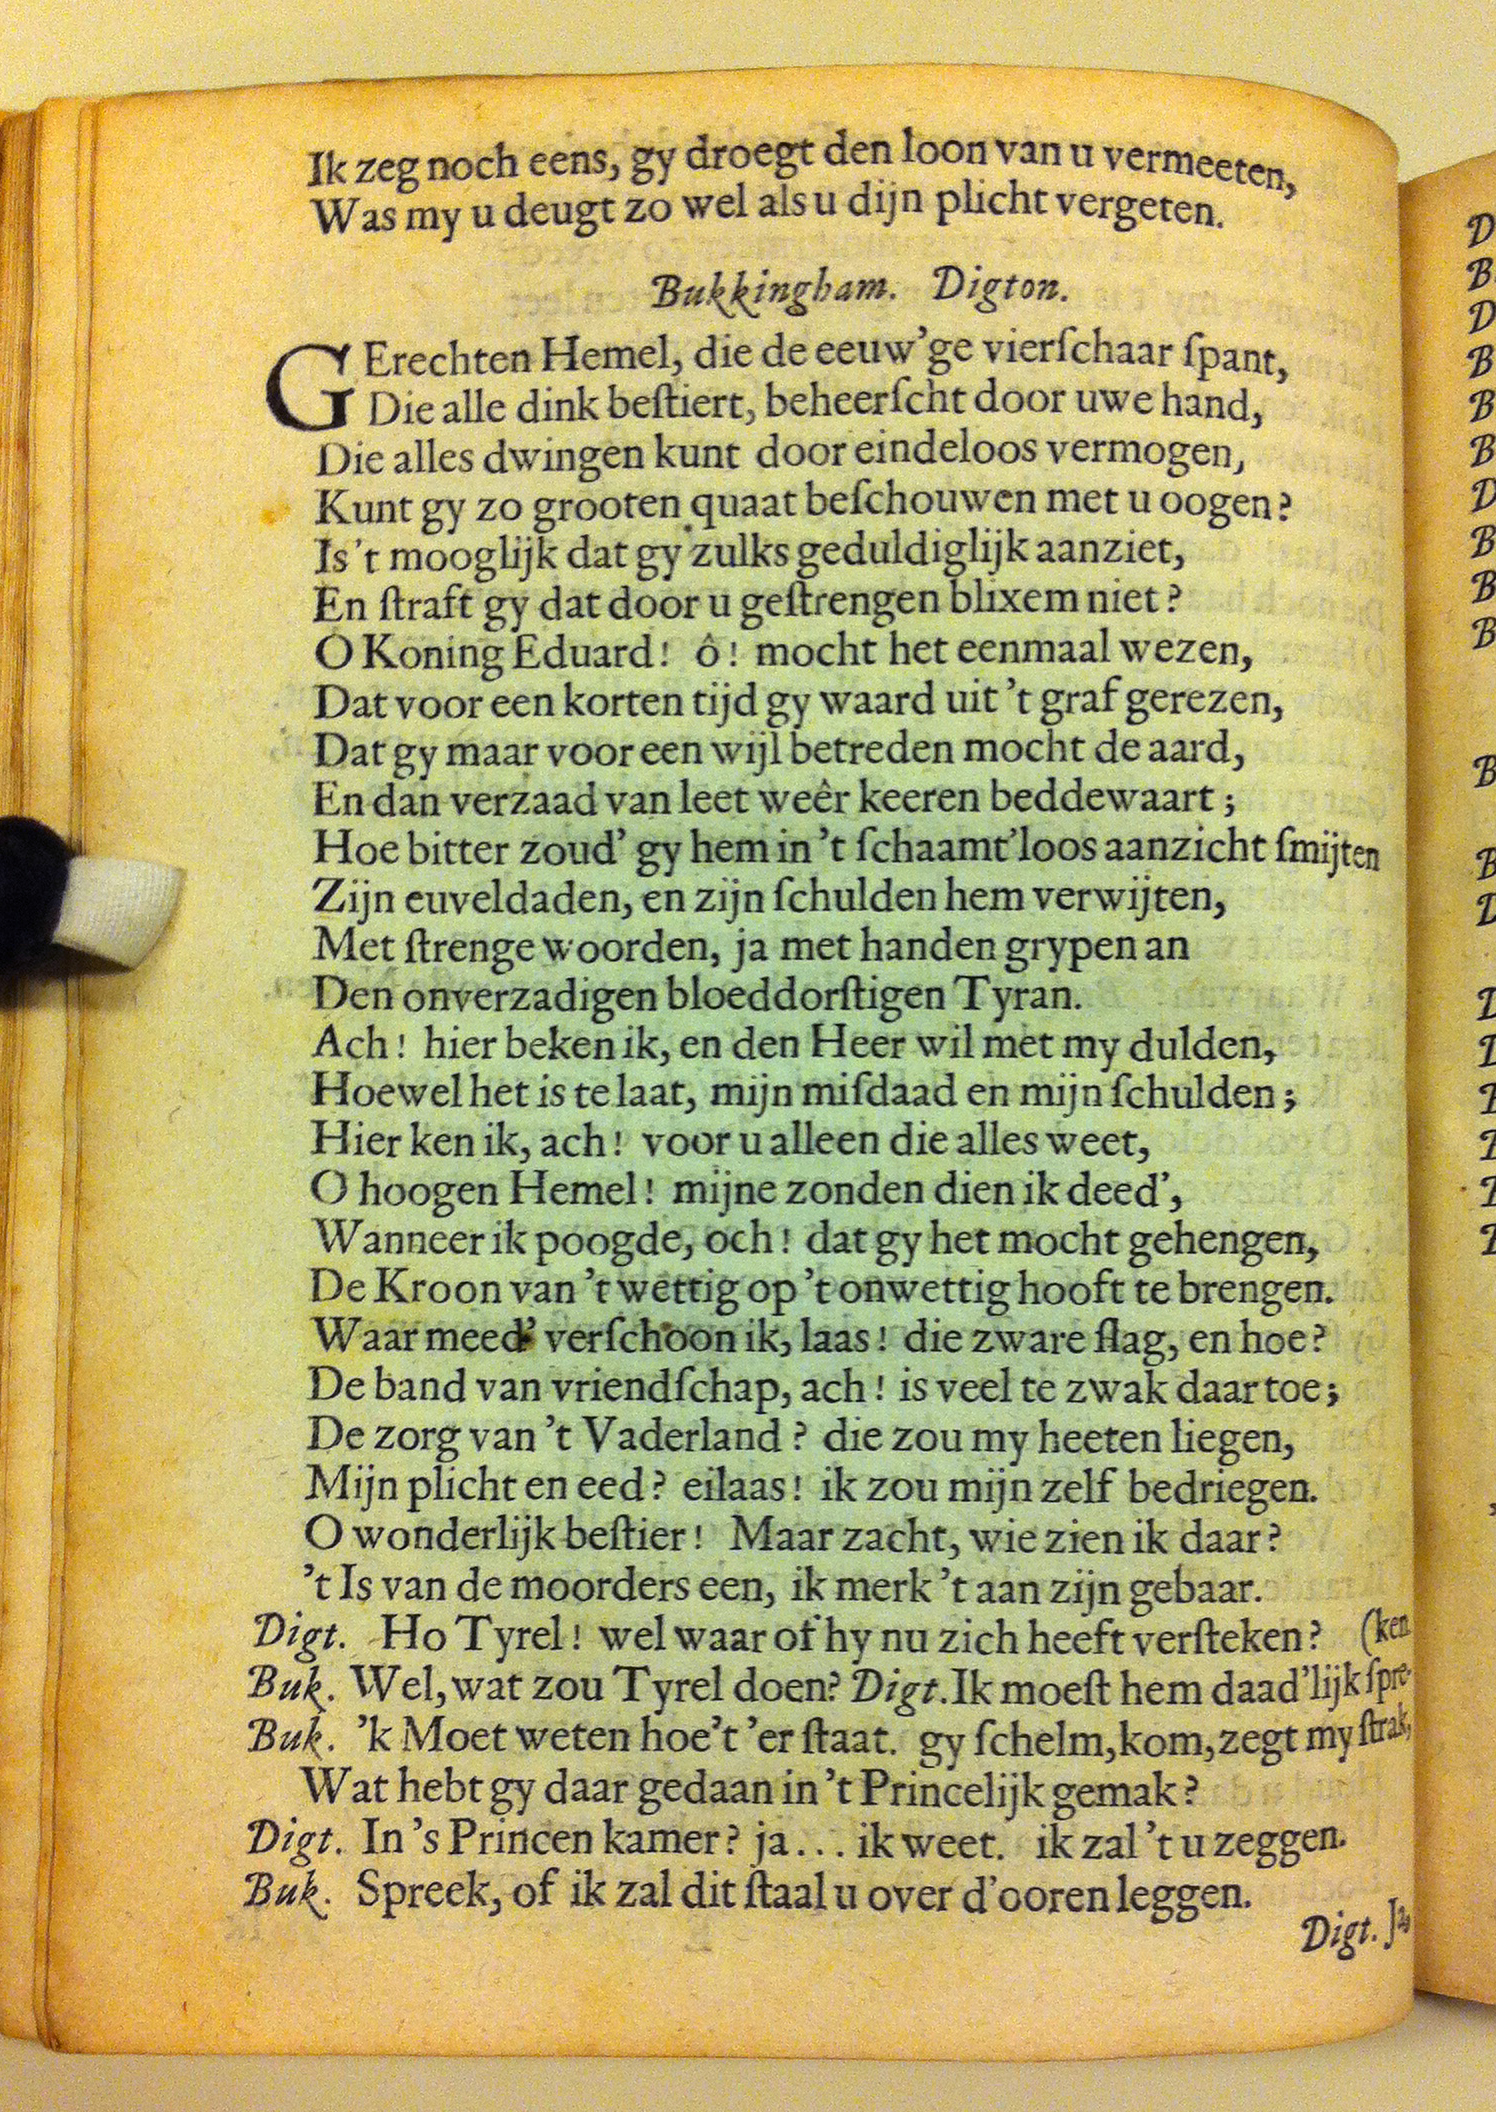 Ik zeg noch eens, gy droegt den loon van u vermeeten,
Was my u deugt zo wel als u dijn plicht vergeten.
Bukkingham. Digton.
GErechten Hemel, die de eeuw'ge vierſchaar ſpant,
Die alle dink beſtiert, beheerſcht door uwe hand,
Die alles dwingen kunt door eindeloos vermogen,
Kunt gy zo grooten quaat beſchouwen met u oogen?
Is 't mooglijk dat gy zulks geduldiglijk aanziet,
En ſtraft gy dat door u geſtrengen blixem niet?
O Koning Eduard! ô! mocht het eenmaal wezen,
Dat voor een korten tijd gy waard uit 't graf gerezen,
Dat gy maar voor een wijl betreden mocht de aard,
En dan verzaad van leet weêr keeren beddewaart;
Hoe bitter zoud' gy hem in 't ſchaamt'loos aanzicht ſmijten
Zijn euveldaden, en zijn ſchulden hem verwijten,
Met ſtrenge woorden, ja met handen grypen an
Den onverzadigen bloeddorſtigen Tyran.
Ach! hier beken ik, en den Heer wil met my dulden,
Hoewel het is te laat, mijn miſdaad en mijn ſchulden;
Hier ken ik, ach! voor u alleen die alles weet,
O hoogen Hemel! mijne zonden dien ik deed',
Wanneer ik poogde, och! dat gy het mocht gehengen,
De Kroon van 't wettig op 't onwettig hooft te brengen.
Waar meed' verſchoon ik, laas! die zware ſlag, en hoe?
De band van vriendſchap, ach! is veel te zwak daar toe;
De zorg van 't Vaderland? die zou my heeten liegen,
Mijn plicht en eed? eilaas! ik zou mijn zelf bedriegen.
O wonderlijk beſtier! Maar zacht, wie zien ik daar?
't Is van de moorders een, ik merk 't aan zijn gebaar.
Digt. Ho Tyrel! wel waar of hy nu zich heeft verſteken? (ken
Buk. Wel, wat zou Tyrel doen? Digt. Ik moeſt hem daad'lijk ſpre-
Buk. 'k Moet weten hoe't 'er ſtaat. gy ſchelm, kom, zegt my ſtrak,
Wat hebt gy daar gedaan in 't Princelijk gemak?
Digt. In 's Princen kamer? ja... ik weet. ik zal 't u zeggen.
Buk. Spreek, of ik zal dit ſtaal u over d'ooren leggen.
Digt.